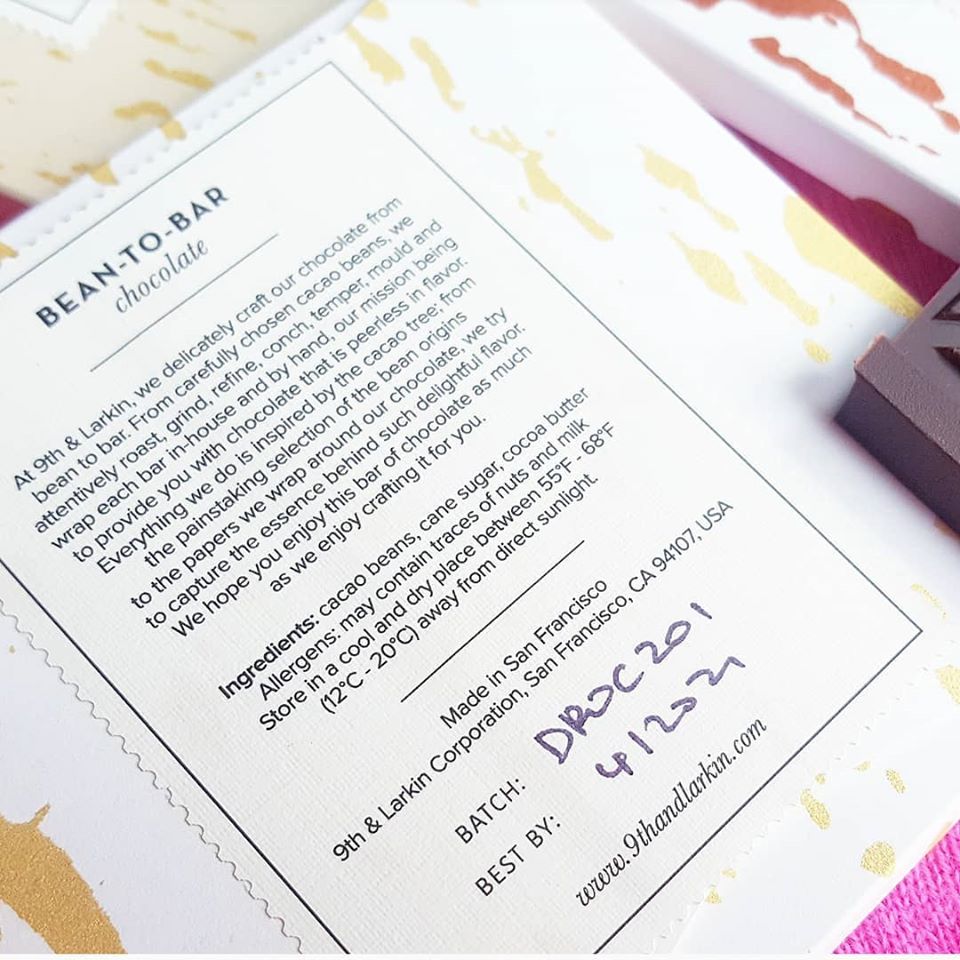 BEAN-TO-BAR
chocolate
At 9th & Larkin, we delicately craft our chocolate from
bean to bar. From carefully chosen cacao beans, we
attentively roast, grind, refine, conch, temper, mould and
wrap each bar in-house and by hand, our mission being
to provide you with chocolate that is peerless in flavor.
Everything we do is inspired by the cacao tree; from
the painstaking selection of the bean origins
to the papers we wrap around our chocolate, we try
to capture the essence behind such delightful flavor.
We hope you enjoy this bar of chocolate as much
as we enjoy crafting it for you.
Ingredients: cacao beans, cane sugar, cocoa butter
Allergens: may contain traces of nuts and milk
Store in a cool and dry place between 55°F - 68°F
(12°C - 20°C) away from direct sunlight.
Made in San Francisco
9th & Larkin Corporation, San Francisco, CA 94107, USA
BATCH: DRDC 201
BEST BY: 412021
www.9thandlarkin.com